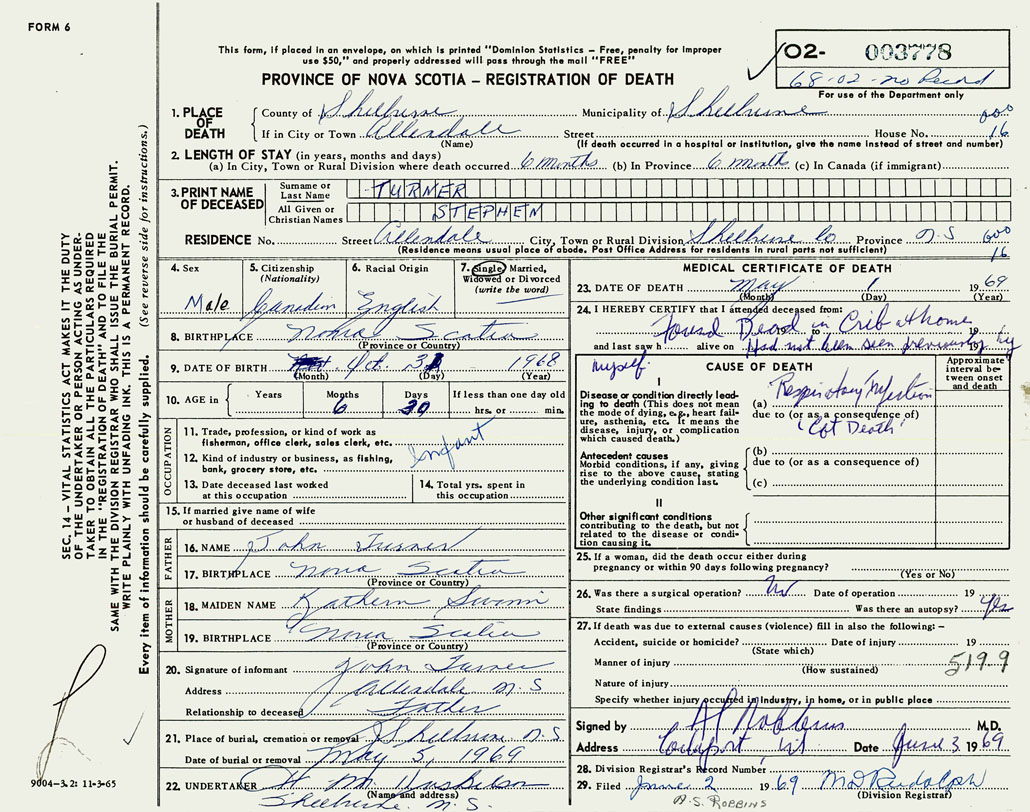 FORM 6
This form, if placed in an envelope, on which is printed "Dominion Statistics – Free, penalty for improper
use $50," and properly addressed will pass through the mail "FREE"
PROVINCE OF NOVA SCOTIA – REGISTRATION OF DEATH
02- 003778
68-02-no Record
For use of the Department only
1. PLACE OF DEATH County of Shelburne Municipality of Shelburne 600
If in City or Town Allendale Street House No. 16
(Name) (If death occurred in a hospital or institution, give the name instead of street and number)
2. LENGTH OF STAY (in years, months and days)
(a) In City, Town or Rural Division where death occurred 6 months (b) In Province 6 month (c) In Canada (if immigrant)
3. PRINT NAME OF DECEASED
Surname or Last Name TURNER
All Given or Christian Names STEPHEN
RESIDENCE No. Street Allendale City, Town or Rural Division Shelburne Co Province N.S 600
(Residence means usual place of abode. Post Office Address for residents in rural parts not sufficient) 16
4. Sex 5. Citizenship (Nationality) 6. Racial Origin 7. Single, Married, Widowed or Divorced (write the word)
Male Canadin English
8. BIRTHPLACE Nova Scotia
(Province or Country)
9. DATE OF BIRTH Oct. 31 1968
(Month) (Day) (Year)
10. AGE in Years Months Days If less than one day old
6 hrs. or min.
OCCUPATION
11. Trade, profession, or kind of work as
fisherman, office clerk, sales clerk, etc.
Infant
12. Kind of industry or business, as fishing,
bank, grocery store, etc.
13. Date deceased last worked
at this occupation
14. Total yrs. spent in
this occupation
15. If married give name of wife
or husband of deceased
FATHER
16. NAME John Turner
17. BIRTHPLACE Nova Scotia
(Province or Country)
MOTHER
18. MAIDEN NAME Kathern
19. BIRTHPLACE Nova Scotia
(Province or Country)
20. Signature of informant John Turner
Address Allendale N.S
Relationship to deceased Father
21. Place of burial, cremation or removal Shelburne N.S.
Date of burial or removal May 3, 1969
22. UNDERTAKER H M Huskilson
(Name and address)
Shelburne N.S.
MEDICAL CERTIFICATE OF DEATH
23. DATE OF DEATH May 1 1969
(Month) (Day) (Year)
24. I HEREBY CERTIFY that I attended deceased from:
Found Dead in Crib at home
to 19
and last saw h alive on Had not been seen previously by 19
myself.
CAUSE OF DEATH
Approximate interval between onset and death
I
Disease or condition directly leading to death (This does not mean the mode of dying, e.g., heart failure, asthenia, etc. It means the disease, injury, or complication which caused death.)
(a) Respiratory Infection
due to (or as a consequence of)
"Cot Death"
Antecedent causes
Morbid conditions, if any, giving rise to the above cause, stating the underlying condition last.
(b)
due to (or as a consequence of)
(c)
II
Other significant conditions
contributing to the death, but not related to the disease or condition causing it.
25. If a woman, did the death occur either during
pregnancy or within 90 days following pregnancy?
(Yes or No)
26. Was there a surgical operation? No Date of operation 19
State findings Was there an autopsy? Yes
27. If death was due to external causes (violence) fill in also the following: –
Accident, suicide or homicide? Date of injury 19
(State which)
Manner of injury 519.9
(How sustained)
Nature of injury
Specify whether injury occurred in industry, in home, or in public place
Signed by Robbins M.D.
Address Lockeport NS Date June 3 1969
28. Division Registrar's Record Number
29. Filed June 2 1969 M D Rudolph
(Division Registrar)
A.S. ROBBINS
SEC. 14 – VITAL STATISTICS ACT MAKES IT THE DUTY
OF THE UNDERTAKER OR PERSON ACTING AS UNDER-
TAKER TO OBTAIN ALL THE PARTICULARS REQUIRED
IN THE "REGISTRATION OF DEATH" AND TO FILE THE
SAME WITH THE DIVISION REGISTRAR WHO SHALL ISSUE THE BURIAL PERMIT.
WRITE PLAINLY WITH UNFADING INK. THIS IS A PERMANENT RECORD.
Every item of information should be carefully supplied. (See reverse side for instructions.)
9004-3.2: 11-3-65